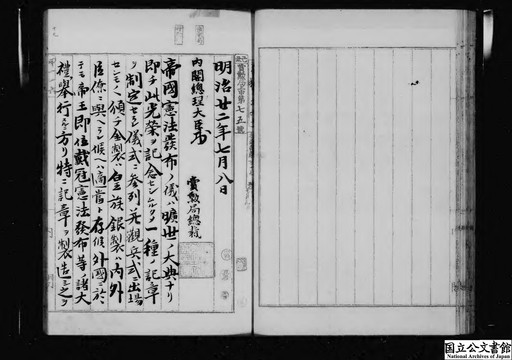 賞勲局 第七五號
明治廿二年七月八日
内閣總理大臣
賞勲局總裁
帝國憲法發布ノ儀ハ曠世ノ大典ナリ
即チ此光榮ヲ記念センカ為メ一種ノ記章
ヲ制定セラレ儀式ニ參列并觀兵式ニ出場
センモノヘ頒チ金製ハ皇族銀製ハ内外
臣僚ニ與ヘラレ候ハヽ適當ト存候外國ニ於
テモ帝王即位戴冠憲法發布等ノ諸大
禮擧行スルニ方リ特ニ記章ヲ製造シ之ヲ
国立公文書館
National Archives of Japan